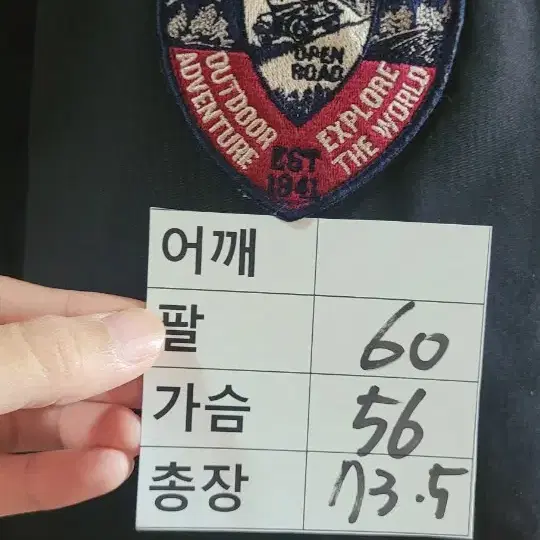 OPEN
ROAD
OUTDOOR
ADVENTURE
EXPLORE
THE WORLD
EST
1941
어깨
팔 60
가슴 56
총장 73.5